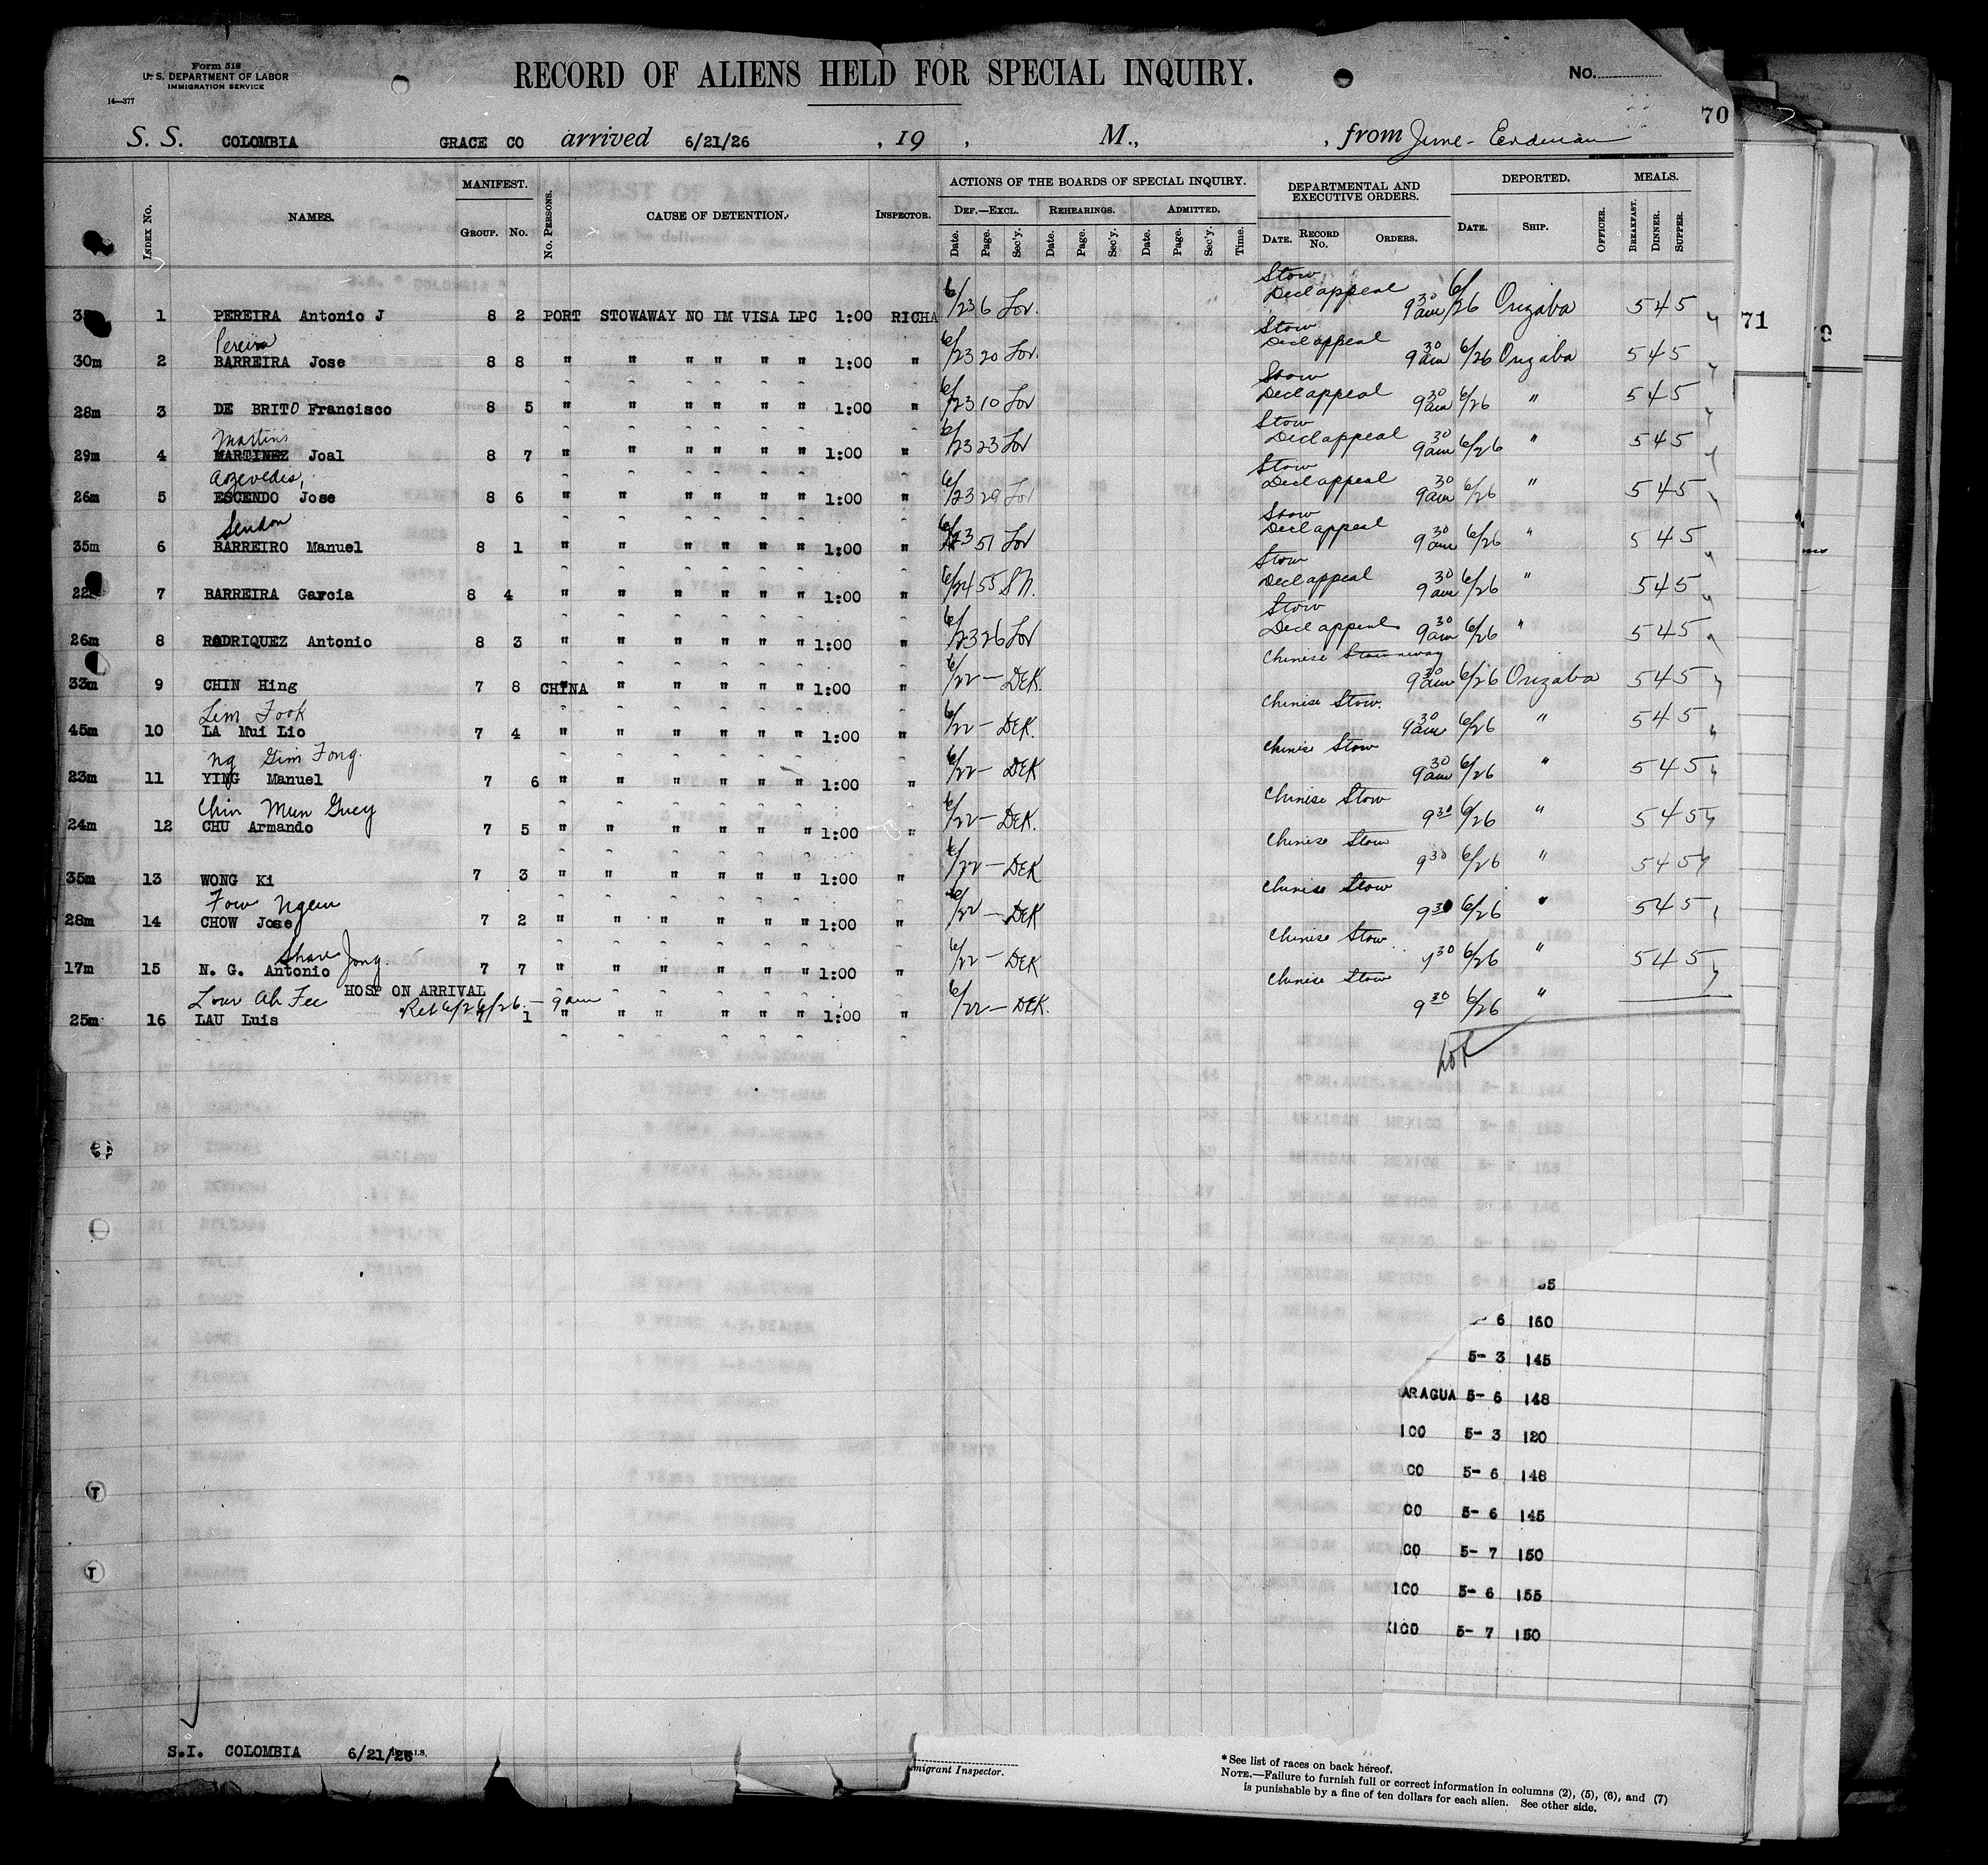 Form 518
U. S. DEPARTMENT OF LABOR
IMMIGRATION SERVICE
14—377
RECORD OF ALIENS HELD FOR SPECIAL INQUIRY.
No.
70
S. S. COLOMBIA GRACE CO arrived 6/21/26 , 19 , M., , from June-
INDEX No. NAMES. MANIFEST. GROUP. No. No. PERSONS. CAUSE OF DETENTION. INSPECTOR. ACTIONS OF THE BOARDS OF SPECIAL INQUIRY. DEF.—EXCL. Date. Page. Sec'y. REHEARINGS. Date. Page. Sec'y. ADMITTED. Date. Page. Sec'y. Time. DEPARTMENTAL AND EXECUTIVE ORDERS. DATE. RECORD No. ORDERS. DEPORTED. DATE. SHIP. OFFICER. MEALS. BREAKFAST. DINNER. SUPPER.
Stow
1 PEREIRA Antonio J 8 2 PORT STOWAWAY NO IM VISA LPC 1:00 RICHA 6/23 6 Lov. Decl appeal 9 30 am 6/26 Orizaba 5 4 5
71
Pereira Stow
30m 2 BARREIRA Jose 8 8 " " " " " " 1:00 " 6/23 20 Lov. Decl appeal 9 30 am 6/26 Orizaba 5 4 5
Stow
28m 3 DE BRITO Francisco 8 5 " " " " " " 1:00 " 6/23 10 Lov Decl appeal 9 30 am 6/26 " 5 4 5
Martins Stow
29m 4 MARTINEZ Joal 8 7 " " " " " " 1:00 " 6/23 23 Lov Decl appeal 9 30 am 6/26 " 5 4 5
Azevedis, Stow
26m 5 ESCENDO Jose 8 6 " " " " " " 1:00 " 6/23 29 Lov Decl appeal 9 30 am 6/26 " 5 4 5
Sendon Stow
35m 6 BARREIRO Manuel 8 1 " " " " " " 1:00 " 6/23 51 Lov Decl appeal 9 30 am 6/26 " 5 4 5
Stow
7 BARREIRA Garcia 8 4 " " " " " " 1:00 " 6/24 55 S.N. Decl appeal 9 30 am 6/26 " 5 4 5
Stow
26m 8 RODRIQUEZ Antonio 8 3 " " " " " " 1:00 " 6/23 26 Lov Decl appeal 9 30 am 6/26 " 5 4 5
Chinese Stowaway
33m 9 CHIN Hing 7 8 CHINA " " " " " " 1:00 " 6/22 — DEK. 9 30 am 6/26 Orizaba 5 4 5
Lim Fook Chinese Stow.
45m 10 LA Mui Lio 7 4 " " " " " " 1:00 " 6/22 — DEK. 9 30 am 6/26 " 5 4 5
Ng Gim Fong. Chinese Stow
23m 11 YING Manuel 7 6 " " " " " " 1:00 " 6/22 — DEK 9 30 am 6/26 " 5 4 5
Chin Mun Guey Chinese Stow
24m 12 CHU Armando 7 5 " " " " " " 1:00 " 6/22 — DEK. 9 30 6/26 " 5 4 5
Chinese Stow
35m 13 WONG Ki 7 3 " " " " " " 1:00 " 6/22 — DEK 9 30 6/26 " 5 4 5
Fow Ngem Chinese Stow
28m 14 CHOW Jose 7 2 " " " " " " 1:00 " 6/22 — DEK 9 30 6/26 " 5 4 5
Jong. Chinese Stow
17m 15 N. G. Antonio 7 7 " " " " " " 1:00 " 6/22 — DEK 9 30 6/26 " 5 4 5
Low Ah Fee HOSP ON ARRIVAL Chinese Stow
Ret 6/26 — 9 am
25m 16 LAU Luis 1 " " " " " " 1:00 " 6/22 — DEK. 9 30 6/26 "
6 160
5- 3 145
ARAGUA 5- 6 148
ICO 5- 3 120
CO 5- 6 148
CO 5- 6 145
CO 5- 7 150
ICO 5- 6 155
XICO 5- 7 150
S.I. COLOMBIA 6/21/26
migrant Inspector.
* See list of races on back hereof.
NOTE.—Failure to furnish full or correct information in columns (2), (5), (6), and (7)
is punishable by a fine of ten dollars for each alien. See other side.